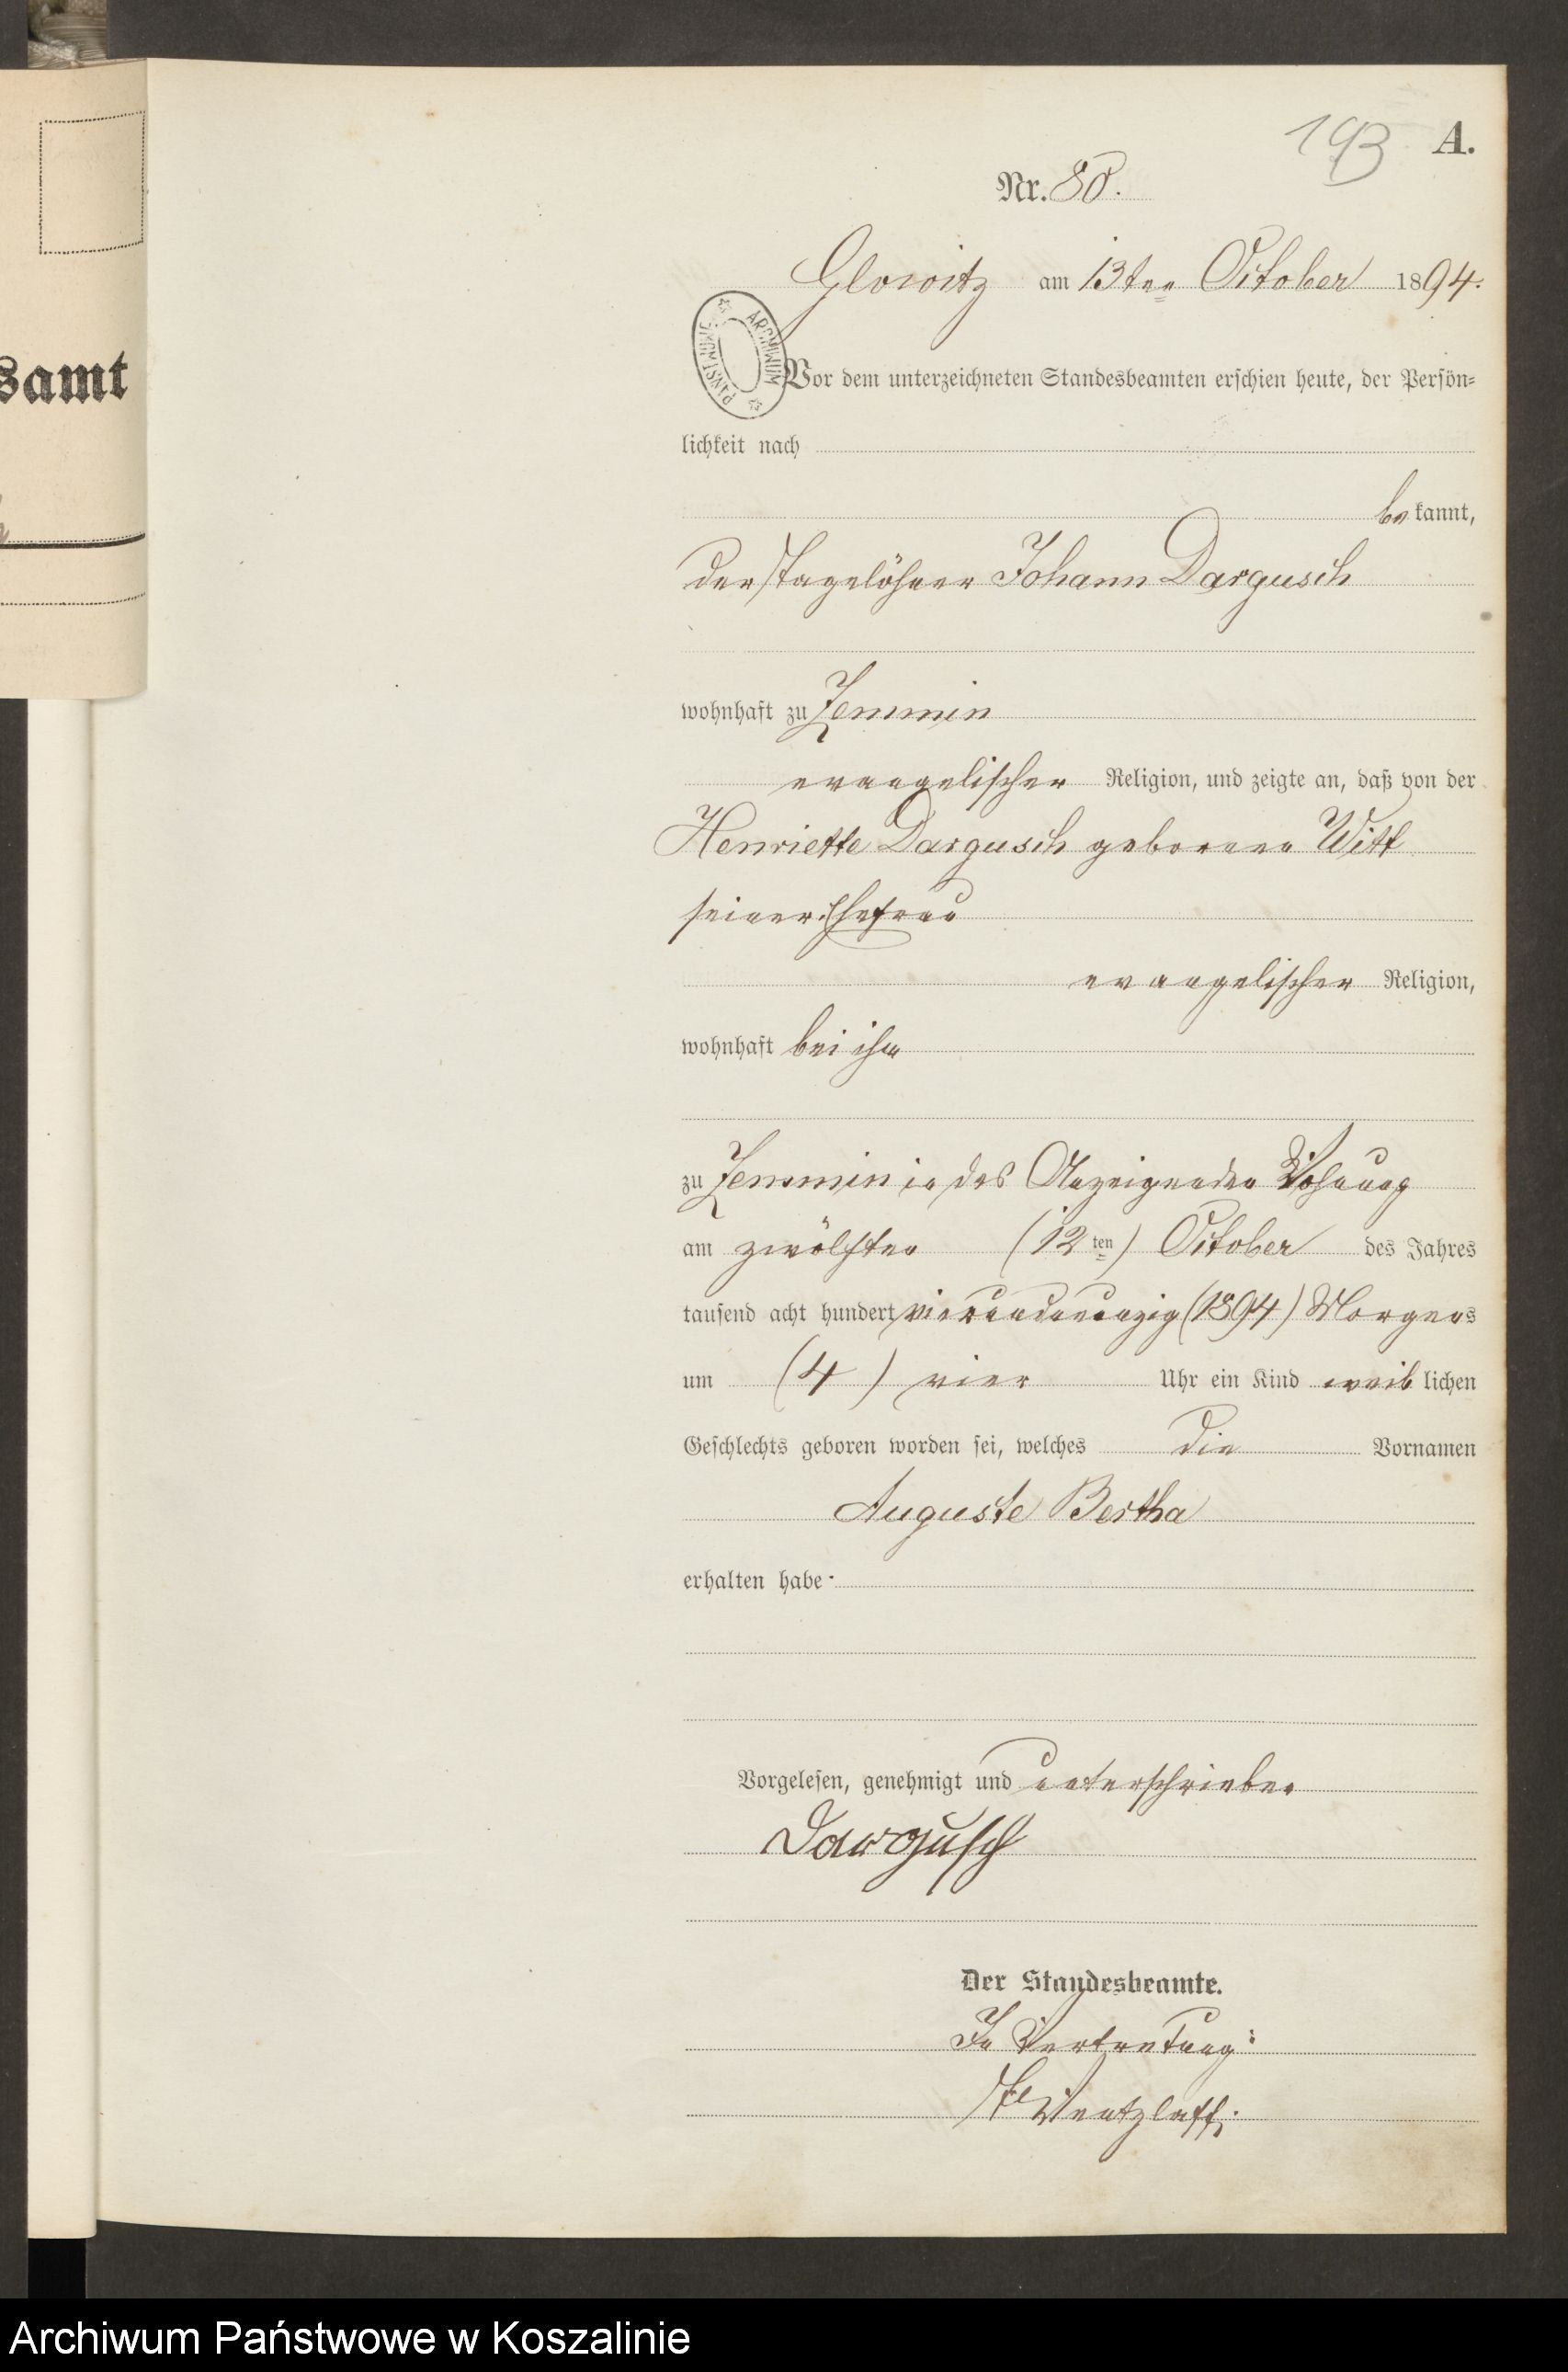 samt
193 A.
Nr. 80.
Glowitz am 13ten October 1894.
ARCHIWUM PAŃSTWOWE
Vor dem unterzeichneten Standesbeamten erschien heute, der Persön-
lichkeit nach
bekannt,
der Tagelöhner Johann Dargusch
wohnhaft zu Zemmin
evangelischer Religion, und zeigte an, daß von der
Henriette Dargusch geborene Witt
seiner Ehefrau
evangelischer Religion,
wohnhaft bei ihm
zu Zemmin in des Anzeigenden Wohnung
am zwölften (12ten) October des Jahres
tausend acht hundert vierundneunzig (1894) Morgens
um (4) vier Uhr ein Kind weiblichen
Geschlechts geboren worden sei, welches die Vornamen
Auguste Bertha
erhalten habe.
Vorgelesen, genehmigt und unterschrieben
Dargusch
Der Standesbeamte.
In Vertretung:
Wentzlaff.
Archiwum Państwowe w Koszalinie